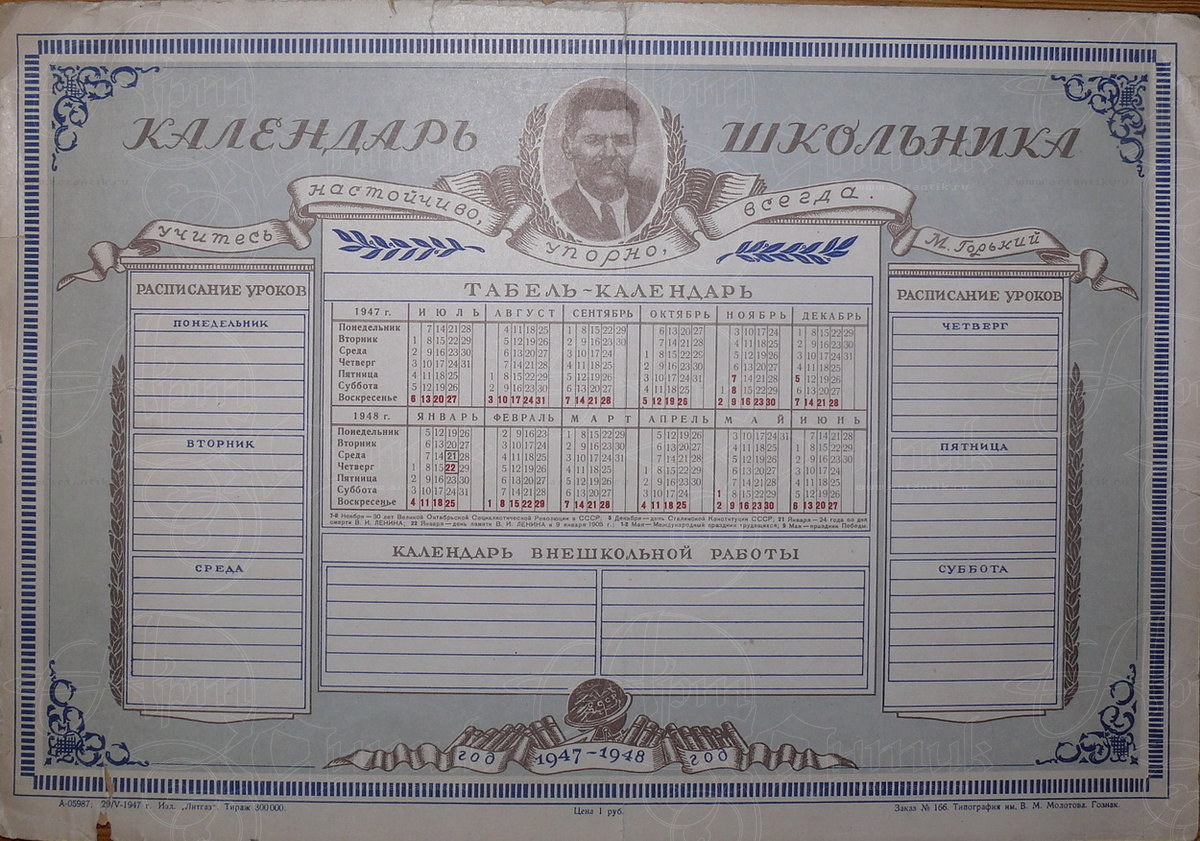 КАЛЕНДАРЬ ШКОЛЬНИКА
учитесь настойчиво, упорно, всегда. М. Горький
РАСПИСАНИЕ УРОКОВ
ПОНЕДЕЛЬНИК
ВТОРНИК
СРЕДА
ТАБЕЛЬ-КАЛЕНДАРЬ
1947 г. ИЮЛЬ АВГУСТ СЕНТЯБРЬ ОКТЯБРЬ НОЯБРЬ ДЕКАБРЬ
Понедельник 7 14 21 28 4 11 18 25 1 8 15 22 29 6 13 20 27 3 10 17 24 1 8 15 22 29
Вторник 1 8 15 22 29 5 12 19 26 2 9 16 23 30 7 14 21 28 4 11 18 25 2 9 16 23 30
Среда 2 9 16 23 30 6 13 20 27 3 10 17 24 1 8 15 22 29 5 12 19 26 3 10 17 24 31
Четверг 3 10 17 24 31 7 14 21 28 4 11 18 25 2 9 16 23 30 6 13 20 27 4 11 18 25
Пятница 4 11 18 25 1 8 15 22 29 5 12 19 26 3 10 17 24 31 7 14 21 28 5 12 19 26
Суббота 5 12 19 26 2 9 16 23 30 6 13 20 27 4 11 18 25 1 8 15 22 29 6 13 20 27
Воскресенье 6 13 20 27 3 10 17 24 31 7 14 21 28 5 12 19 26 2 9 16 23 30 7 14 21 28
1948 г. ЯНВАРЬ ФЕВРАЛЬ МАРТ АПРЕЛЬ МАЙ ИЮНЬ
Понедельник 5 12 19 26 2 9 16 23 1 8 15 22 29 5 12 19 26 3 10 17 24 31 7 14 21 28
Вторник 6 13 20 27 3 10 17 24 2 9 16 23 30 6 13 20 27 4 11 18 25 1 8 15 22 29
Среда 7 14 21 28 4 11 18 25 3 10 17 24 31 7 14 21 28 5 12 19 26 2 9 16 23 30
Четверг 1 8 15 22 29 5 12 19 26 4 11 18 25 1 8 15 22 29 6 13 20 27 3 10 17 24
Пятница 2 9 16 23 30 6 13 20 27 5 12 19 26 2 9 16 23 30 7 14 21 28 4 11 18 25
Суббота 3 10 17 24 31 7 14 21 28 6 13 20 27 3 10 17 24 1 8 15 22 29 5 12 19 26
Воскресенье 4 11 18 25 1 8 15 22 29 7 14 21 28 4 11 18 25 2 9 16 23 30 6 13 20 27
7-8 Ноября — 30 лет Великой Октябрьской Социалистической Революции в СССР; 5 Декабря — день Сталинской Конституции СССР; 21 Января — 24 года со дня
смерти В. И. ЛЕНИНА; 22 Января — день памяти В. И. ЛЕНИНА и 9 января 1905 г.; 1-2 Мая — Международный праздник трудящихся; 9 Мая — праздник Победы.
КАЛЕНДАРЬ ВНЕШКОЛЬНОЙ РАБОТЫ
РАСПИСАНИЕ УРОКОВ
ЧЕТВЕРГ
ПЯТНИЦА
СУББОТА
год 1947-1948 год
А-05987; 29/V-1947 г. Изд. „Литгаз“. Тираж 300000. Цена 1 руб. Заказ № 166. Типография им. В. М. Молотова. Гознак.